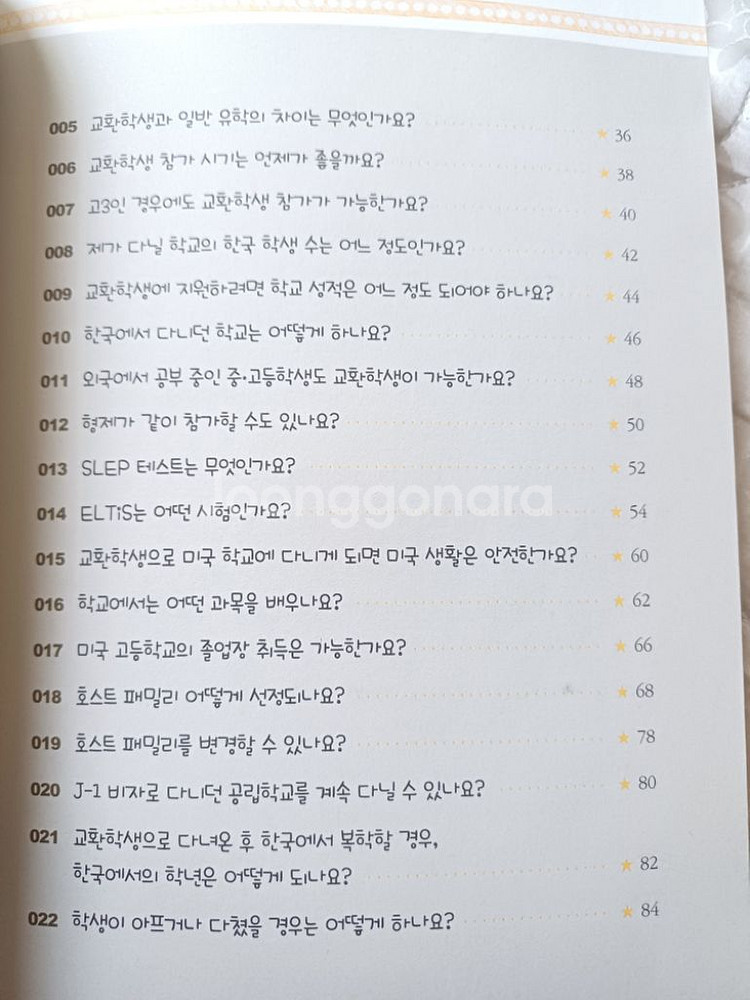 005 교환학생과 일반 유학의 차이는 무엇인가요? ★ 36
006 교환학생 참가 시기는 언제가 좋을까요? ★ 38
007 고3인 경우에도 교환학생 참가가 가능한가요? ★ 40
008 제가 다닐 학교의 한국 학생 수는 어느 정도인가요? ★ 42
009 교환학생에 지원하려면 학교 성적은 어느 정도 되어야 하나요? ★ 44
010 한국에서 다니던 학교는 어떻게 하나요? ★ 46
011 외국에서 공부 중인 중·고등학생도 교환학생이 가능한가요? ★ 48
012 형제가 같이 참가할 수도 있나요? ★ 50
013 SLEP 테스트는 무엇인가요? ★ 52
014 ELTiS는 어떤 시험인가요? ★ 54
joonggonara
015 교환학생으로 미국 학교에 다니게 되면 미국 생활은 안전한가요? ★ 60
016 학교에서는 어떤 과목을 배우나요? ★ 62
017 미국 고등학교의 졸업장 취득은 가능한가요? ★ 66
018 호스트 패밀리 어떻게 선정되나요? ★ 68
019 호스트 패밀리를 변경할 수 있나요? ★ 78
020 J-1 비자로 다니던 공립학교를 계속 다닐 수 있나요? ★ 80
021 교환학생으로 다녀온 후 한국에서 복학할 경우,
한국에서의 학년은 어떻게 되나요? ★ 82
022 학생이 아프거나 다쳤을 경우는 어떻게 하나요? ★ 84